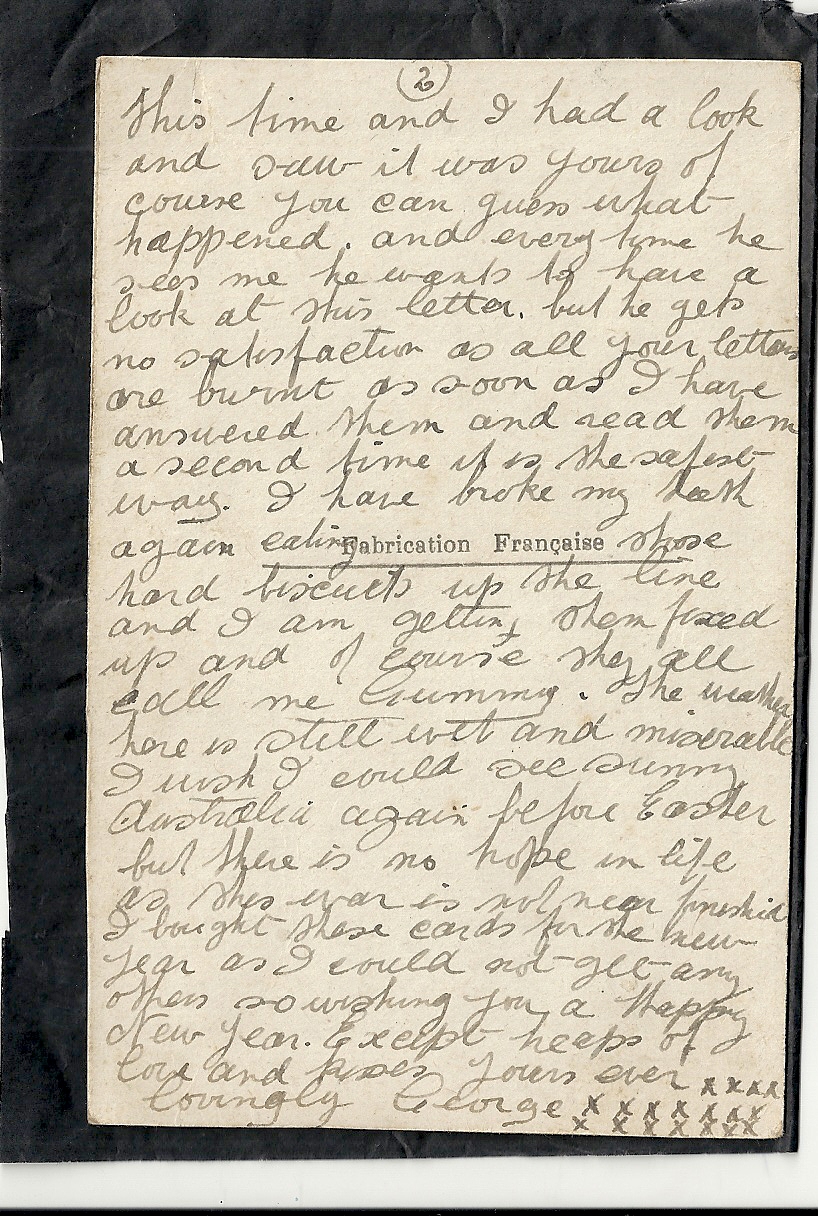 (2)
This time and I had a look
and saw it was yours of
course you can guess what
happened. and every time he
sees me he wants to have a
look at this letter. but he gets
no satisfaction as all your letters
are burnt as soon as I have
answered them and read them
a second time it is the safest
way. I have broke my teeth
again eating those
Fabrication Française
hard biscuits up the line
and I am getting them fixed
up and of course they all
call me Gummy. The weather
here is still wet and miserable
I wish I could see sunny
Australia again before Easter
but there is no hope in life
as this war is not near finishid
I bought these cards for the new
year as I could not get any
others so wishing you a Happy
New Year. Except heaps of
love and kisses yours ever x x x x
lovingly George x x x x x x x
x x x x x x x